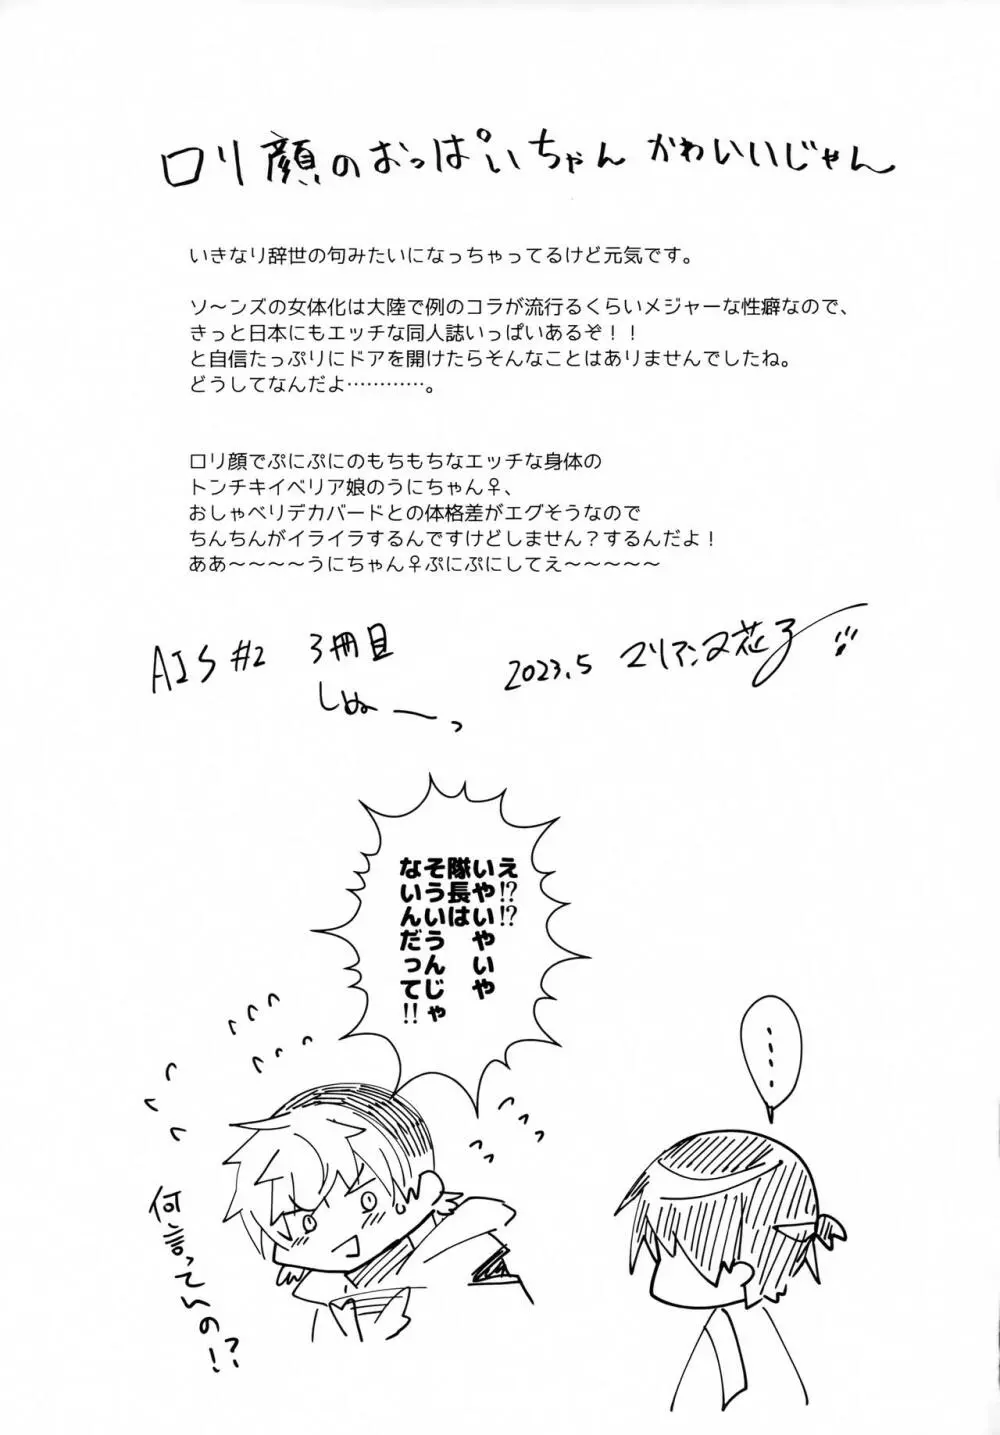 ロリ顔のおっぱいちゃん かわいいじゃん
いきなり辞世の句みたいになっちゃってるけど元気です。
ソ〜ンズの女体化は大陸で例のコラが流行るくらいメジャーな性癖なので、
きっと日本にもエッチな同人誌いっぱいあるぞ！！
と自信たっぷりにドアを開けたらそんなことはありませんでしたね。
どうしてなんだよ…………。
ロリ顔でぷにぷにのもちもちなエッチな身体の
トンチキイベリア娘のうにちゃん♀、
おしゃべりデカバードとの体格差がエグそうなので
ちんちんがイライラするんですけどしません？するんだよ！
ああ〜〜〜〜うにちゃん♀ぷにぷにしてえ〜〜〜〜〜
AJS #2 3冊目
しぬーっ
2023.5 マリアンヌ花子
え!?!?
いやいやいや
隊長は
そういうんじゃ
ないんだって!!
‥‥
何言ってんの!?